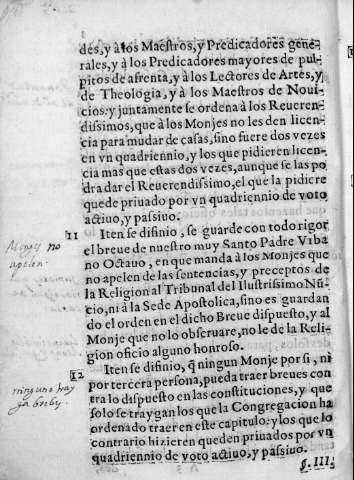 des, y à los Maestros, y Predicadores gene-
rales, y à los Predicadores mayores de pul-
pitos de afrenta, y à los Lectores de Artes, y
de Theologia, y à los Maestros de Noui-
cios: y juntamente se ordena à los Reueren-
dissimos, que à los Monjes no les den licen-
cia para mudar de casas, sino fuere dos vezes
en vn quadriennio, y los que pidieren licen-
cia mas que estas dos vezes, aunque se las po
dra dar el Reuerendissimo, el que la pidiere
quede priuado por vn quadriennio de voto
actiuo, y passiuo.
11 Iten se difinio, se guarde con todo rigor
el breue de nuestro muy Santo Padre Vrba
no Octauo, en que manda à los Monjes que
no apelen de las sentencias, y preceptos de
la Religion al Tribunal del Ilustrissimo Nū-
cio, ni à la Sede Apostolica, sino es guardan
do el orden en el dicho Breue dispuesto, y al
Monje que no lo obseruare, no le de la Reli-
gion oficio alguno honroso.
Monjes no
apelen.
12 Iten se difinio, q̃ ningun Monje por si, ni
por tercera persona, pueda traer breues con
tra lo dispuesto en las constituciones, y que
solo se traygan los que la Congregacion ha
ordenado traer en este capitulo: y los que lo
contrario hizieren queden priuados por vn
quadriennio de voto actiuo, y passiuo.
ninguno tray
ga
§. III.